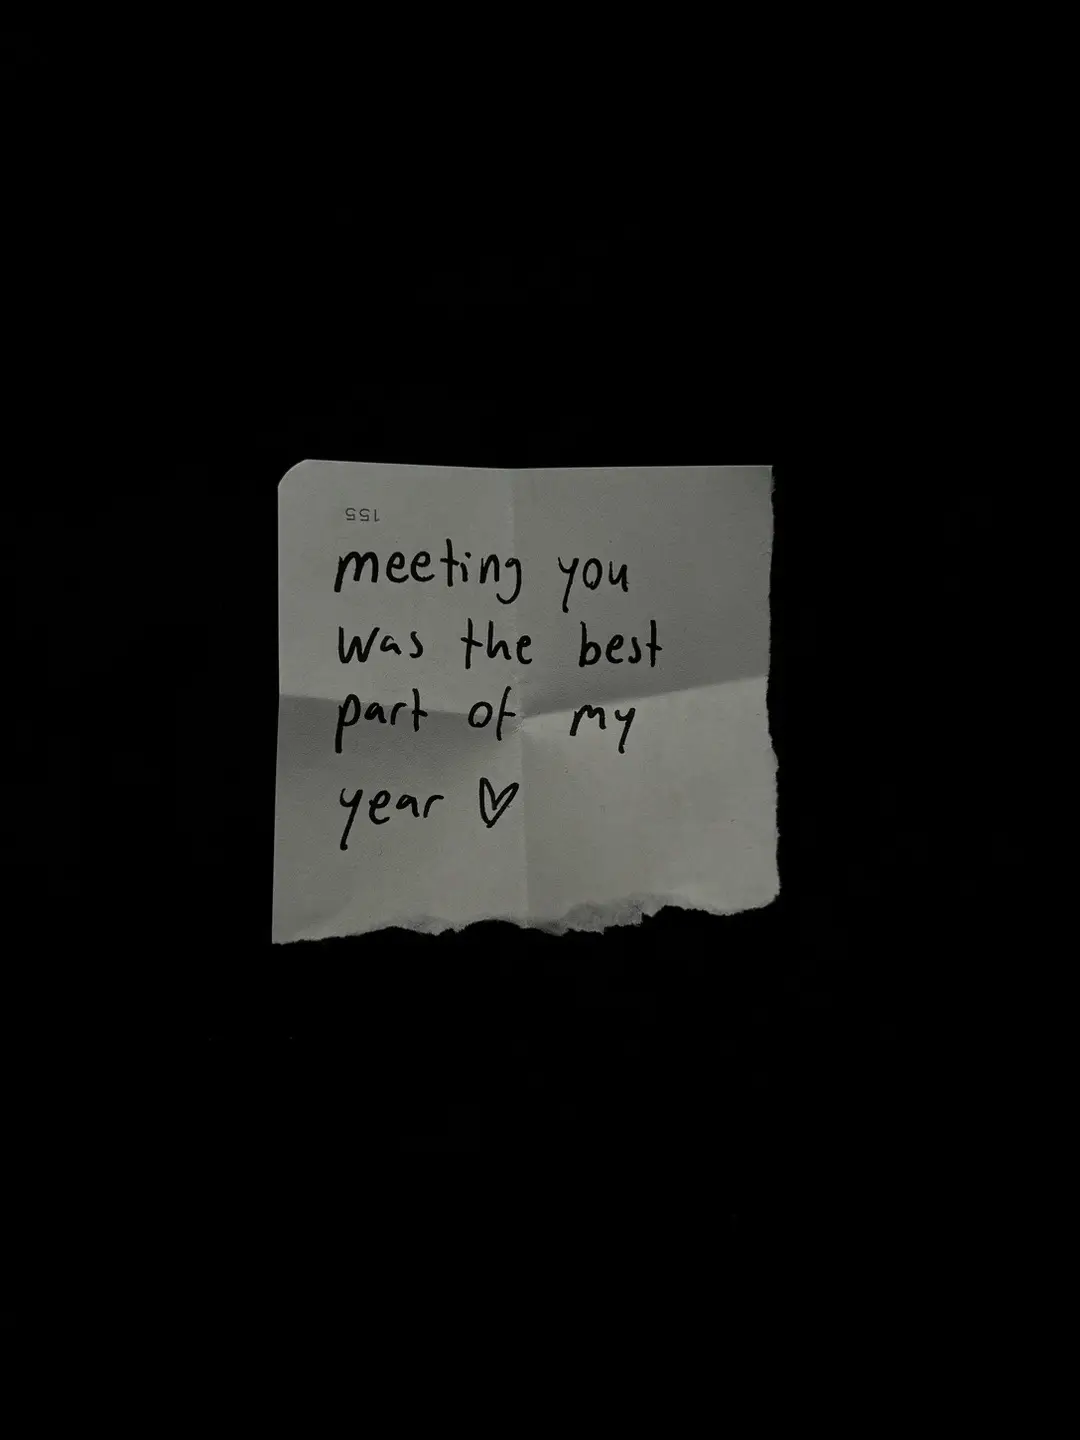 155
meeting you
was the best
part of my
year ♡